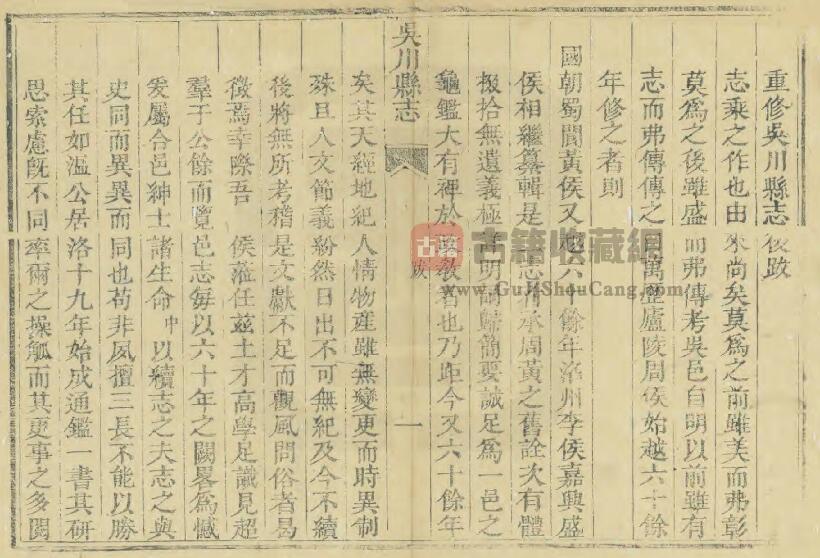 重修吳川縣志後跋
志乘之作也由來尚矣莫爲之前雖美而弗彰
莫爲之後雖盛而弗傳考吳邑自明以前雖有
志而弗傳傳之自萬歷廬陵周侯始越六十餘
年修之者則
國朝蜀閬黃侯又越六十餘年洺州李侯嘉興盛
侯相繼纂輯是志者承周黃之舊詮次有體
掇拾無遺義極詳明詞歸簡要誠足爲一邑之
龜鑑大有裨於政敎者也乃距今又六十餘年
吳川縣志
跋
一
矣其天經地紀人情物產雖無變更而時異制
殊且人文節義紛然日出不可無紀及今不續
後將無所考稽是文獻不足而觀風問俗者曷
徵焉幸際吾 侯蒞任茲土才高學足識見超
羣于公餘而覽邑志每以六十年之闕畧爲憾
爰屬合邑紳士諸生命中以續志之夫志之與
史同而異異而同也苟非夙擅三長不能以勝
其任如溫公居洛十九年始成通鑑一書其硏
思索慮旣不同率爾之操觚而其更事之多閱
古籍
古籍收藏網
www.GuJiShouCang.com